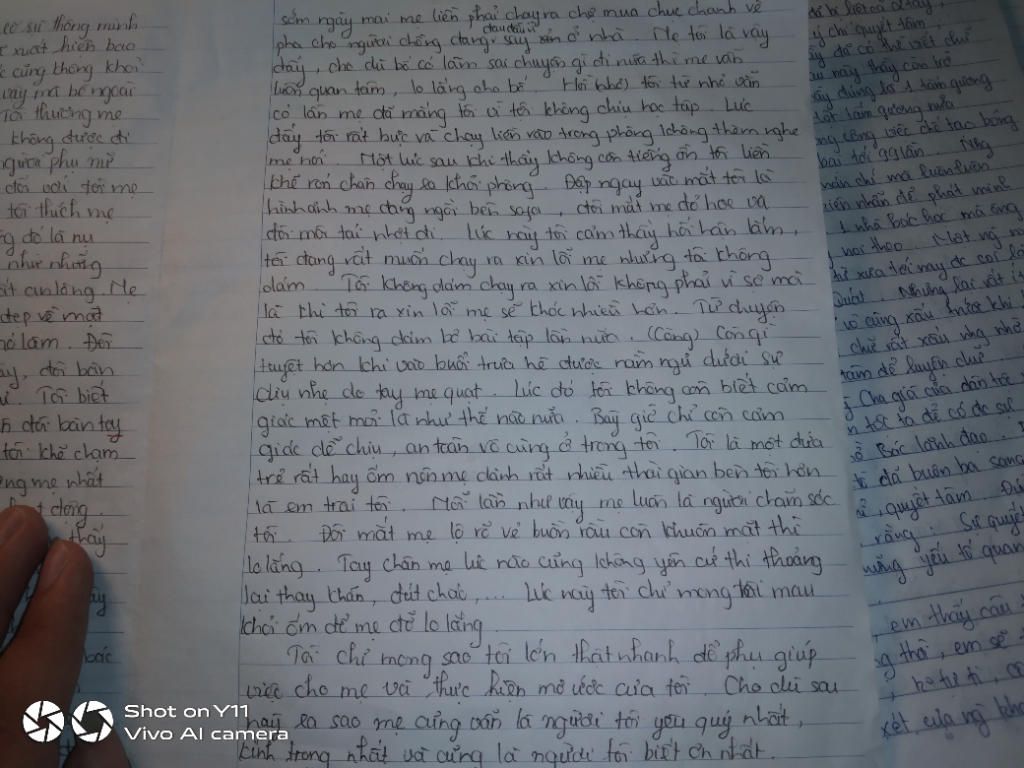 có sự thông minh
xuất hiện bao
cũng thông khoi
vậy mà bề ngoài
Tôi thương mẹ
không được đi
người phụ nữ
đối với tôi mẹ
tôi thích mẹ
đó là nụ
như những
an lòng. Mẹ
đẹp về mặt
lắm. Đôi
đôi bàn
Tôi biết
đôi bàn tay
tôi khẽ chạm
mẹ nhất
động.
thấy
sớm ngày mai mẹ liền phải chạy ra chợ mua chục chanh về
đau đầu vì
pha cho người chồng đang say xỉn ở nhà. Mẹ tôi là vậy
đấy, cho dù bố có làm sai chuyện gì đi nữa thì mẹ vẫn
luôn quan tâm, lo lắng cho bố. Hồi nhỏ, tôi từ nhỏ vẫn
có lần mẹ đã mắng tôi vì tôi không chịu học tập. Lúc
đấy tôi rất bực và chạy liền vào trong phòng không thèm nghe
mẹ nói. Một lúc sau khi thấy không còn tiếng ồn tôi liền
khẽ rón chân chạy ra khỏi phòng. Đập ngay vào mắt tôi là
hình ảnh mẹ đang ngồi bên sofa, đôi mắt mẹ đỏ hoe và
đôi môi tái nhợt đi. Lúc này tôi cảm thấy hối hận lắm,
tôi đang rất muốn chạy ra xin lỗi mẹ nhưng tôi không
dám. Tôi không dám chạy ra xin lỗi không phải vì sợ mà
là khi tôi ra xin lỗi mẹ sẽ khóc nhiều hơn. Từ chuyện
đó tôi không dám bỏ bài tập lần nữa. (Công) Còn gì
tuyệt hơn khi vào buổi trưa hè được nằm ngủ dưới sự
dịu nhẹ do tay mẹ quạt. Lúc đó tôi không còn biết cảm
giác mệt mỏi là như thế nào nữa. Bây giờ chỉ còn cảm
giác dễ chịu, an toàn vô cùng ở trong tôi. Tôi là một đứa
trẻ rất hay ốm nên mẹ dành rất nhiều thời gian bên tôi hơn
là em trai tôi. Mỗi lần như vậy mẹ luôn là người chăm sóc
tôi. Đôi mắt mẹ lộ rõ vẻ buồn rầu còn khuôn mặt thì
lo lắng. Tay chân mẹ lúc nào cũng không yên cứ thi thoảng
lại thay khăn, đút cháo,... Lúc này tôi chỉ mong tôi mau
khỏi ốm để mẹ đỡ lo lắng.
Tôi chỉ mong sao tôi lớn thật nhanh để phụ giúp
việc cho mẹ và thực hiện mơ ước của tôi. Cho dù sau
này ra sao mẹ cũng vẫn là người tôi yêu quý nhất,
kính trọng nhất và cũng là người tôi biết ơn nhất.
chỉ quyết tâm
để có thể viết chữ
này thấy cản trở
đúng là 1 tấm gương
tấm gương nữa
công việc chế tạo bóng
bại tới 99 lần.
chán chí mà luôn luôn
nhẫn để phát minh
nhà bác học mà ông
noi theo. Một vị
xưa tới nay
Quát. Nhưng
vô cùng xấu trước khi
chữ rất xấu nhưng nhờ
để luyện chữ.
Cha già của dân tộc
ta để có
Bác lãnh đạo.
đã buôn ba sang
quyết tâm.
rằng: Sự quyết
yếu tố quan
em thấy câu
thời, em sẽ
tự ti,
xét của
Shot on Y11
Vivo AI camera